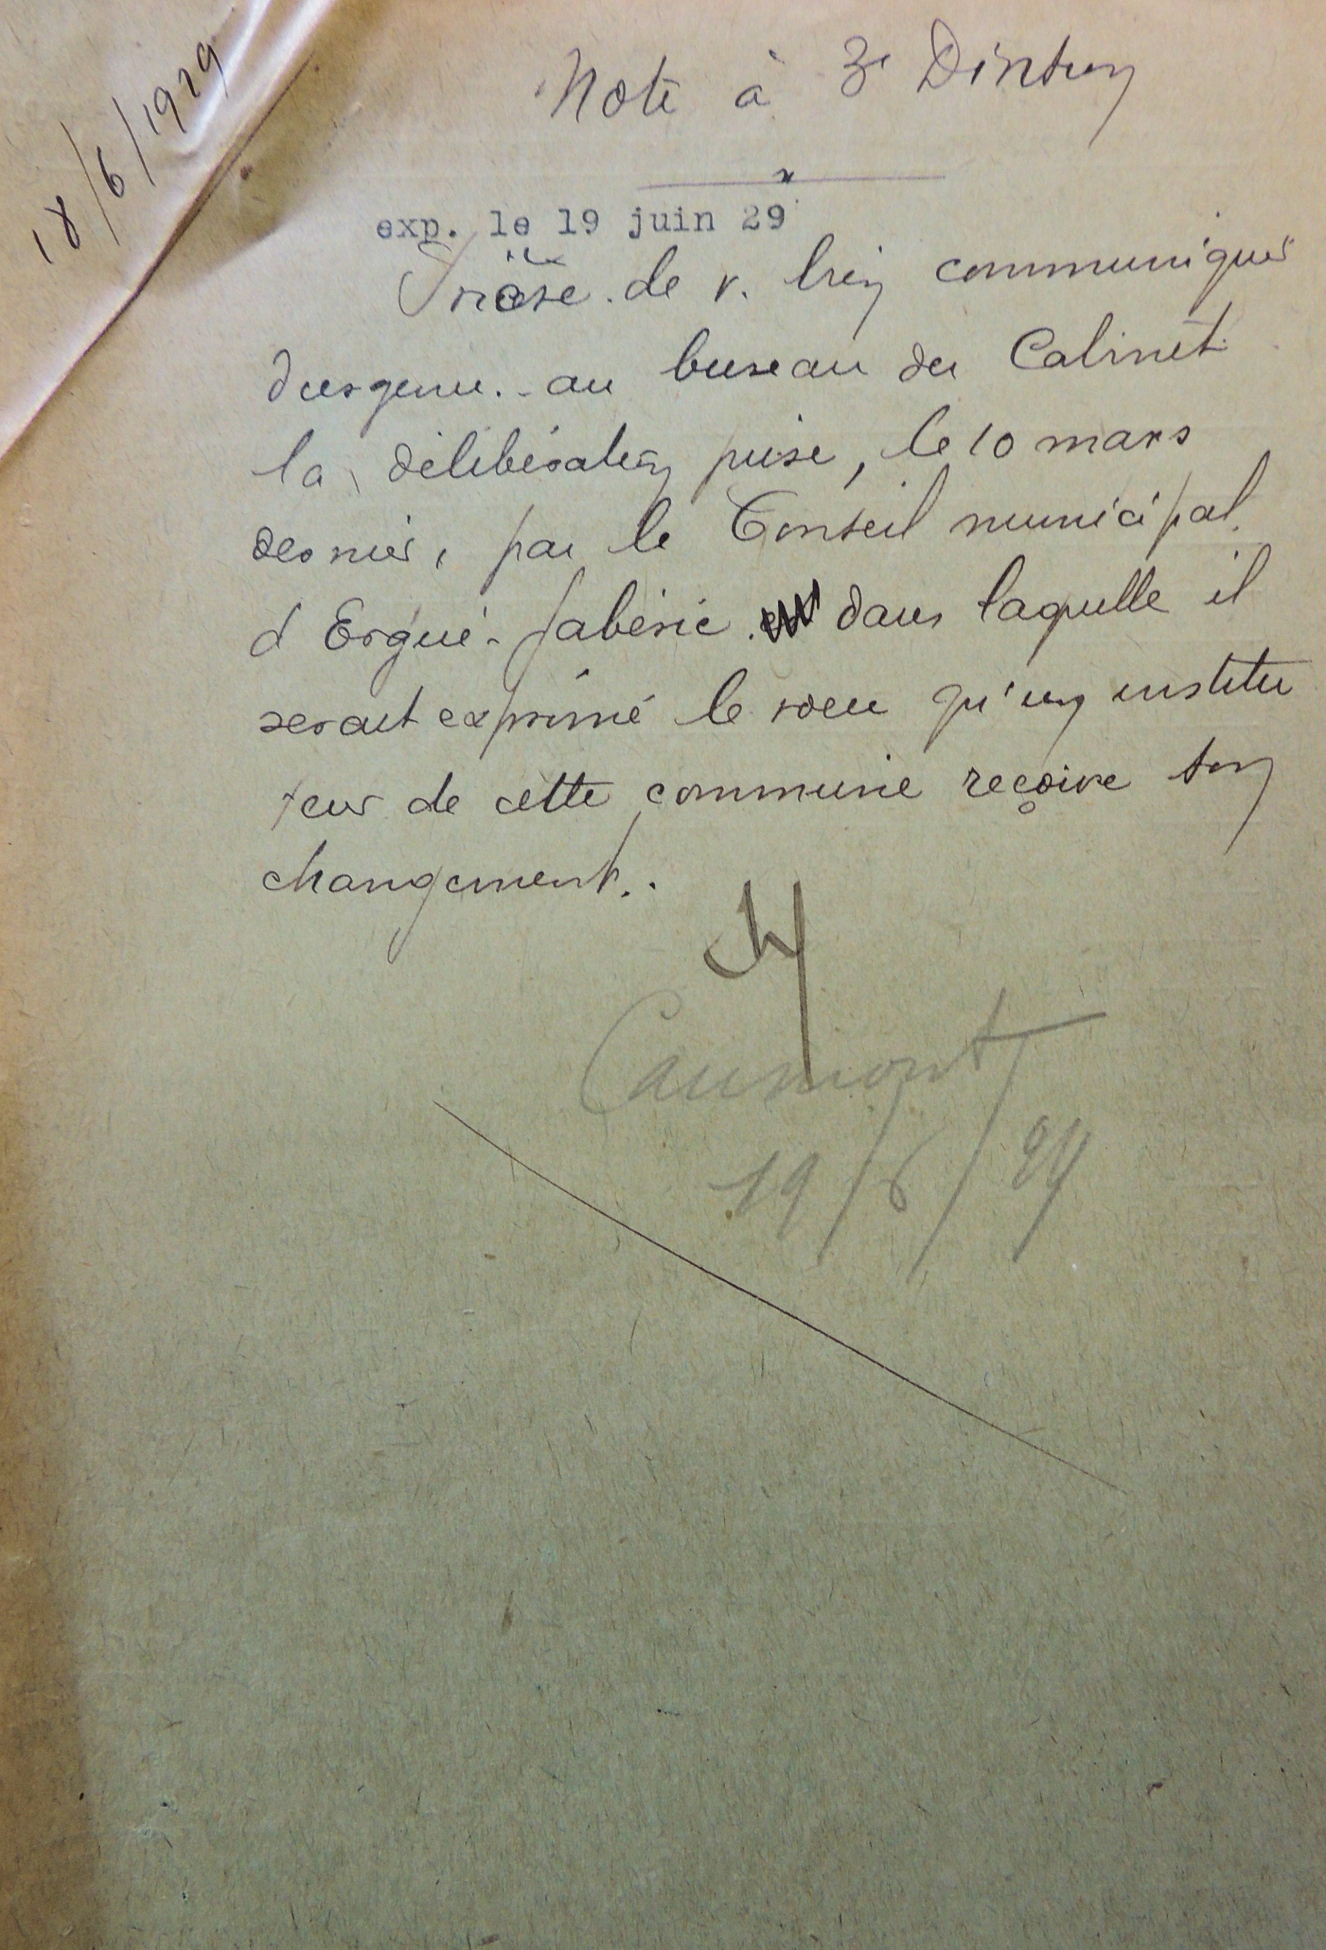 18/6/1929
Note à 3e Division
exp. le 19 juin 29
Prière de v. bien communiquer
d'urgence au bureau du Cabinet
la délibération prise, le 10 mars
dernier, par le Conseil municipal
d'Ergué-Gabéric dans laquelle il
serait exprimé le voeu qu'un institu
teur de cette commune reçoive son
changement.
Caumont
19/6/29